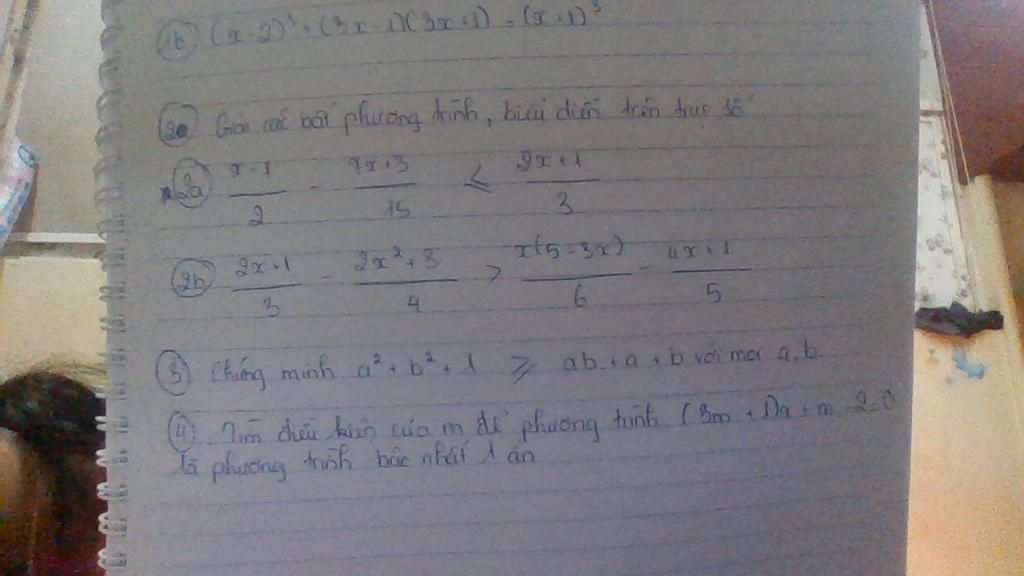 1b (x-2)³ + (3x-1)(3x+1) = (x+1)³
2 Giải các bất phương trình, biểu diễn trên trục số
2a (x-1)/2 - (7x+3)/15 ≤ (2x+1)/3
2b (2x+1)/3 - (2x²+3)/4 > x(5-3x)/6 - (4x+1)/5
3 Chứng minh a² + b² + 1 ≥ ab + a + b với mọi a, b
4 Tìm điều kiện của m để phương trình (3m + 1)x + m - 2 = 0
là phương trình bậc nhất 1 ẩn